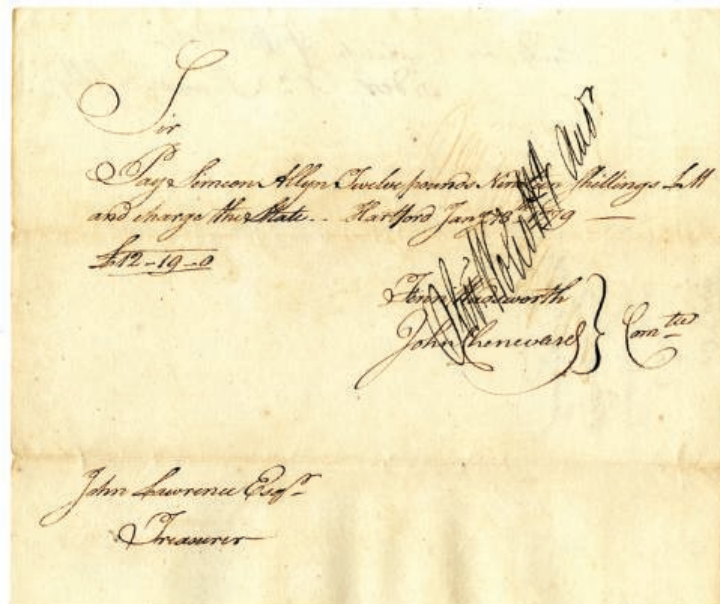 Sir
Pay Simeon Allyn Twelve pounds Nineteen Shillings LM
and charge the State - Hartford Jany 1779 —
£12-19-0
Fenn Wadsworth
John Chenevard } Comtee
John Lawrence Esqr
Treasurer